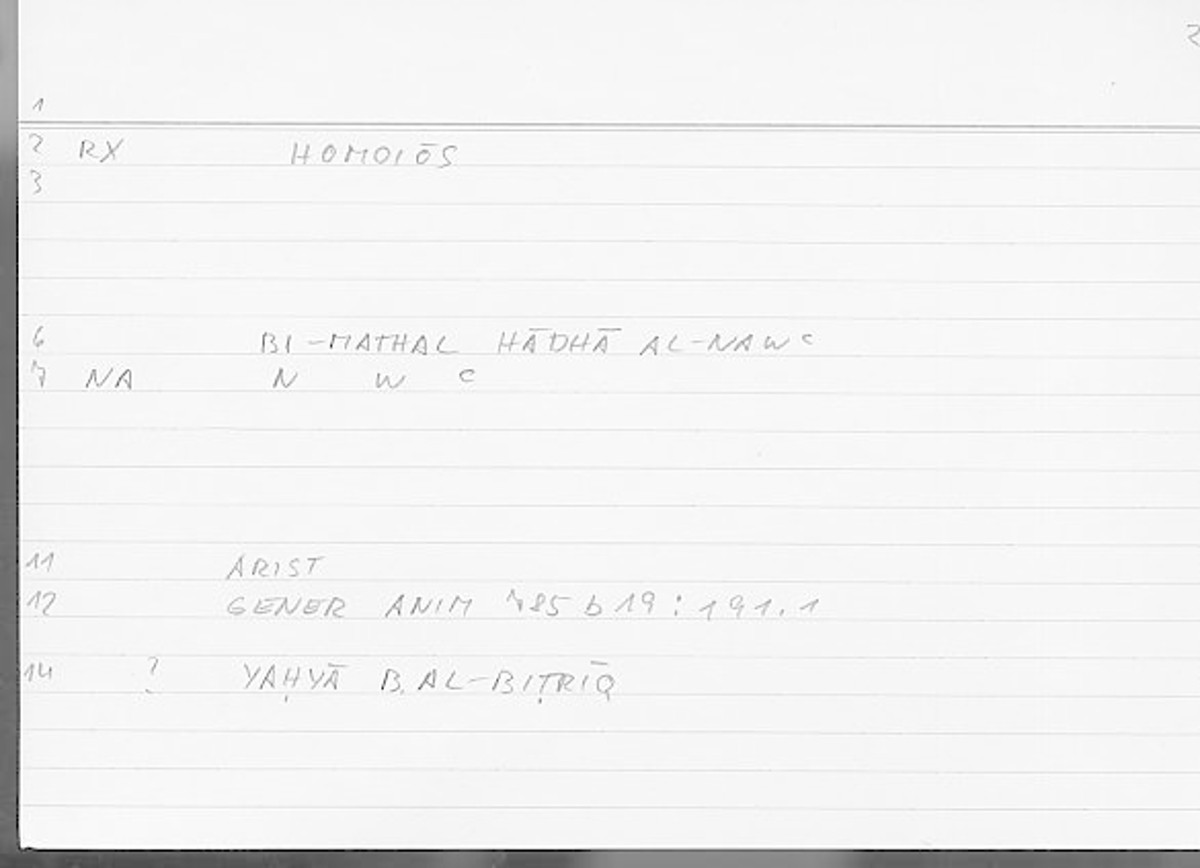 2
1
2 RX HOMOIŌS
3
6 BI-MATHAL HĀDHĀ AL-NAWc
7 NA N W c
11 ARIST
12 GENER ANIM 785 b 19 : 191.1
14 ? YAḤYĀ B. AL-BIṬRĪQ